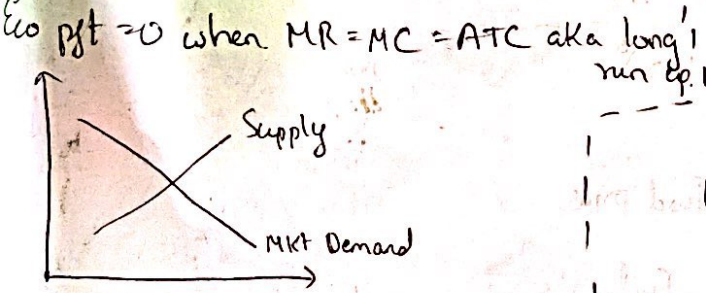 Eco pft =0 when MR = MC = ATC aka long
run eq.
Supply
MKt Demand